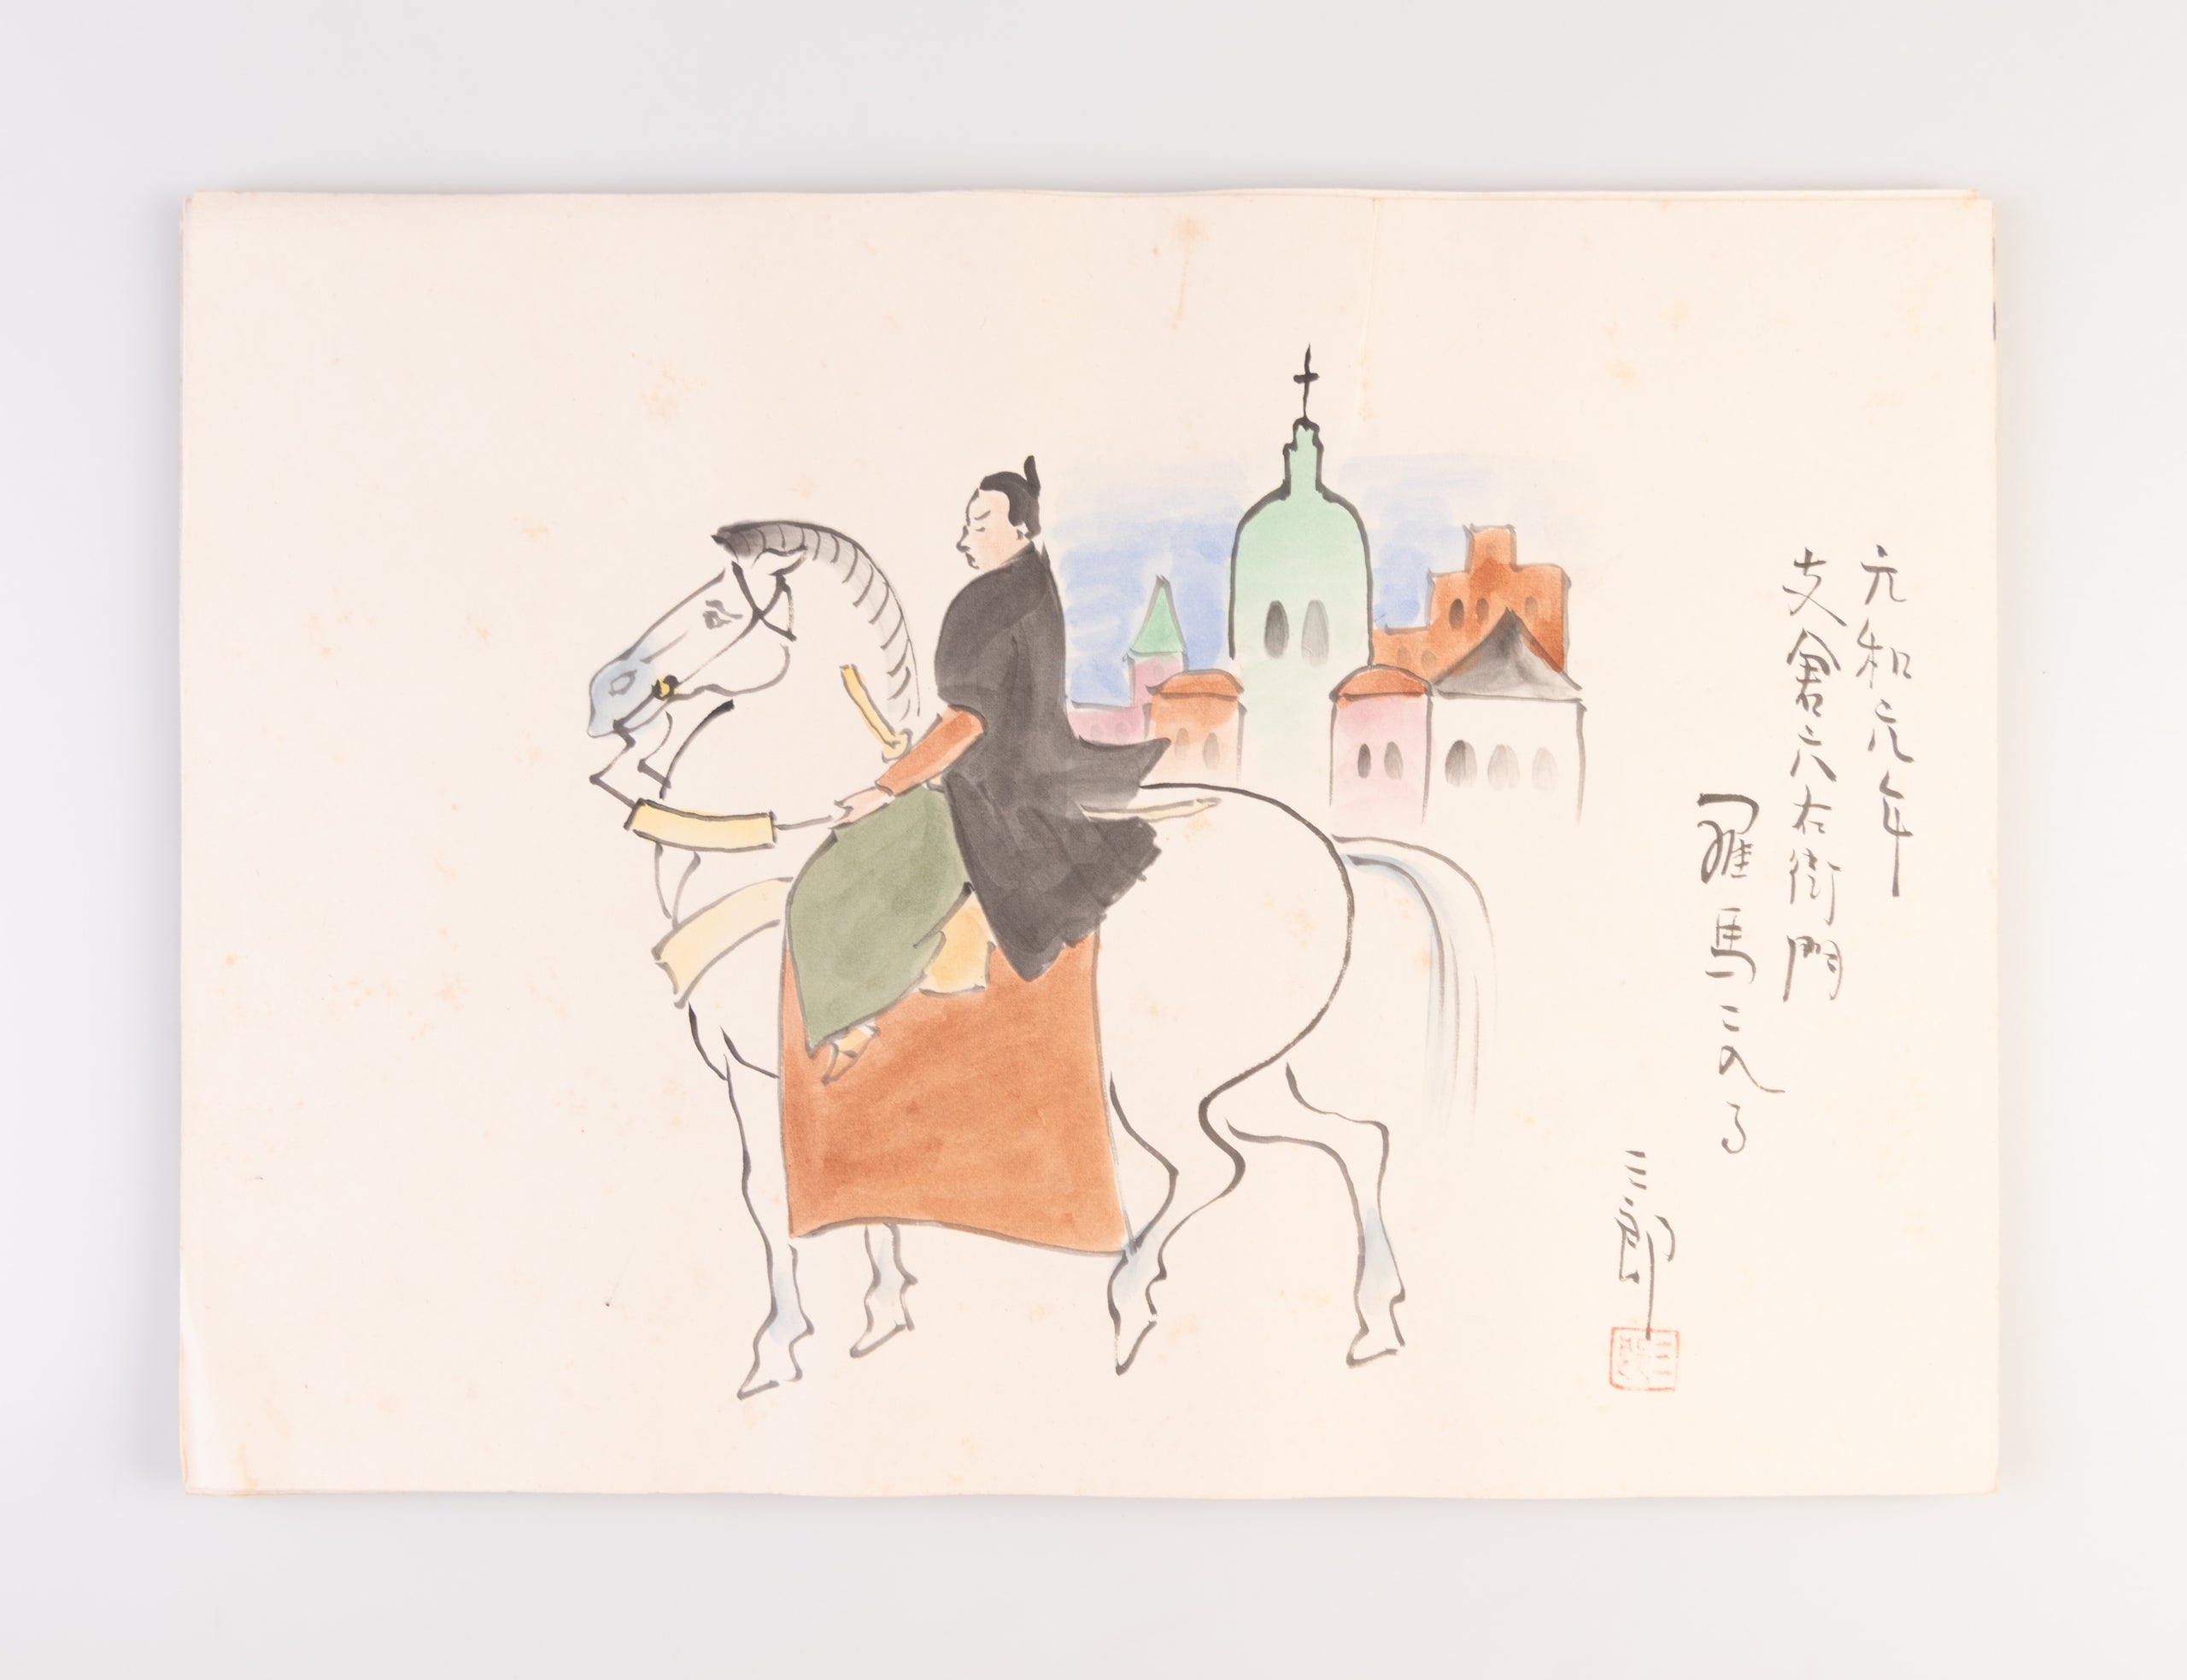 元和元年
支倉六右衛門
羅馬二入る
三郎